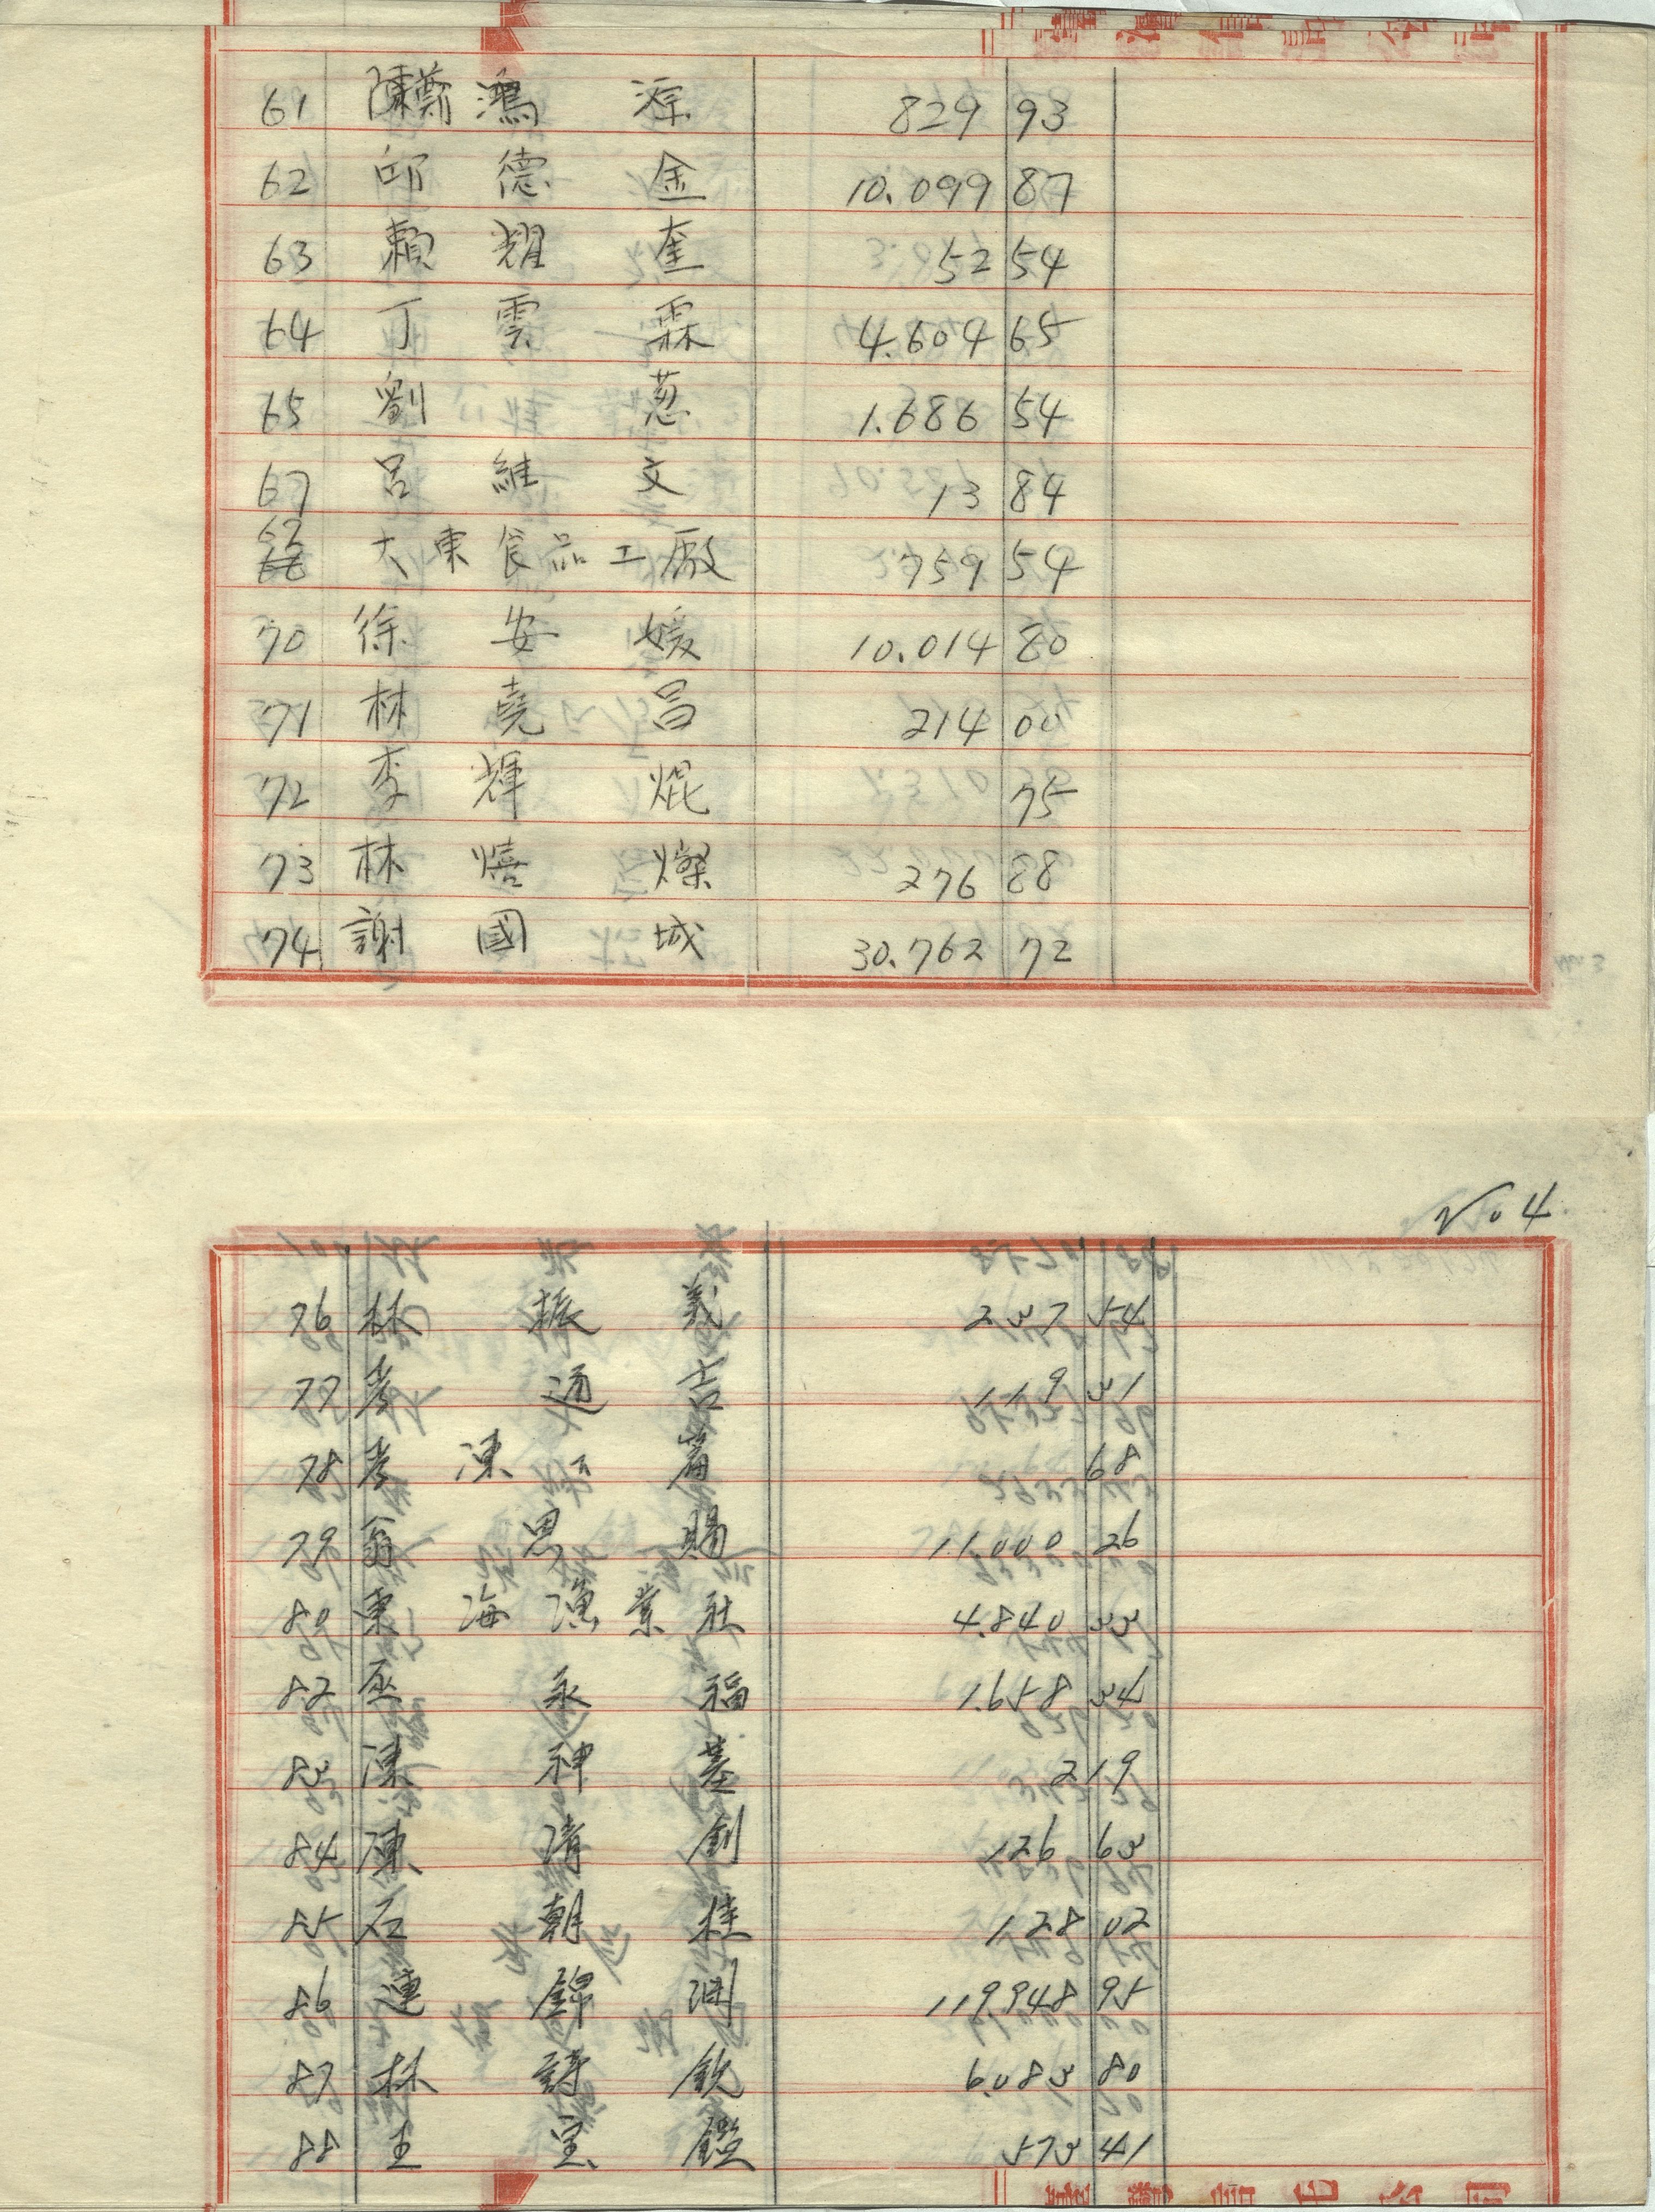 61 陳鄭鴻源 829 93
62 邱德金 10.099 87
63 賴耀奎 52 54
64 丁雲霖 4.604 65
65 劉葱 1.686 54
67 呂維文 13 84
62 大東食品工廠 759 54
70 徐安媛 10.014 80
71 林堯昌 214 00
72 李輝焜 75
73 林熺燦 276 88
74 謝國城 30.762 72
No 4
76 林振義 237 54
77 李通吉 119 31
78 李陳 68
79 翁思賜 11.000 26
80 東海漁業社 4.840 33
82 巫永福 1.658 34
83 陳神基 2 19
84 陳清釗 126 63
85 石朝桂 128 02
86 連錦淵 119.948 95
87 林詩欽 6.083 80
88 王皇鑑 573 41